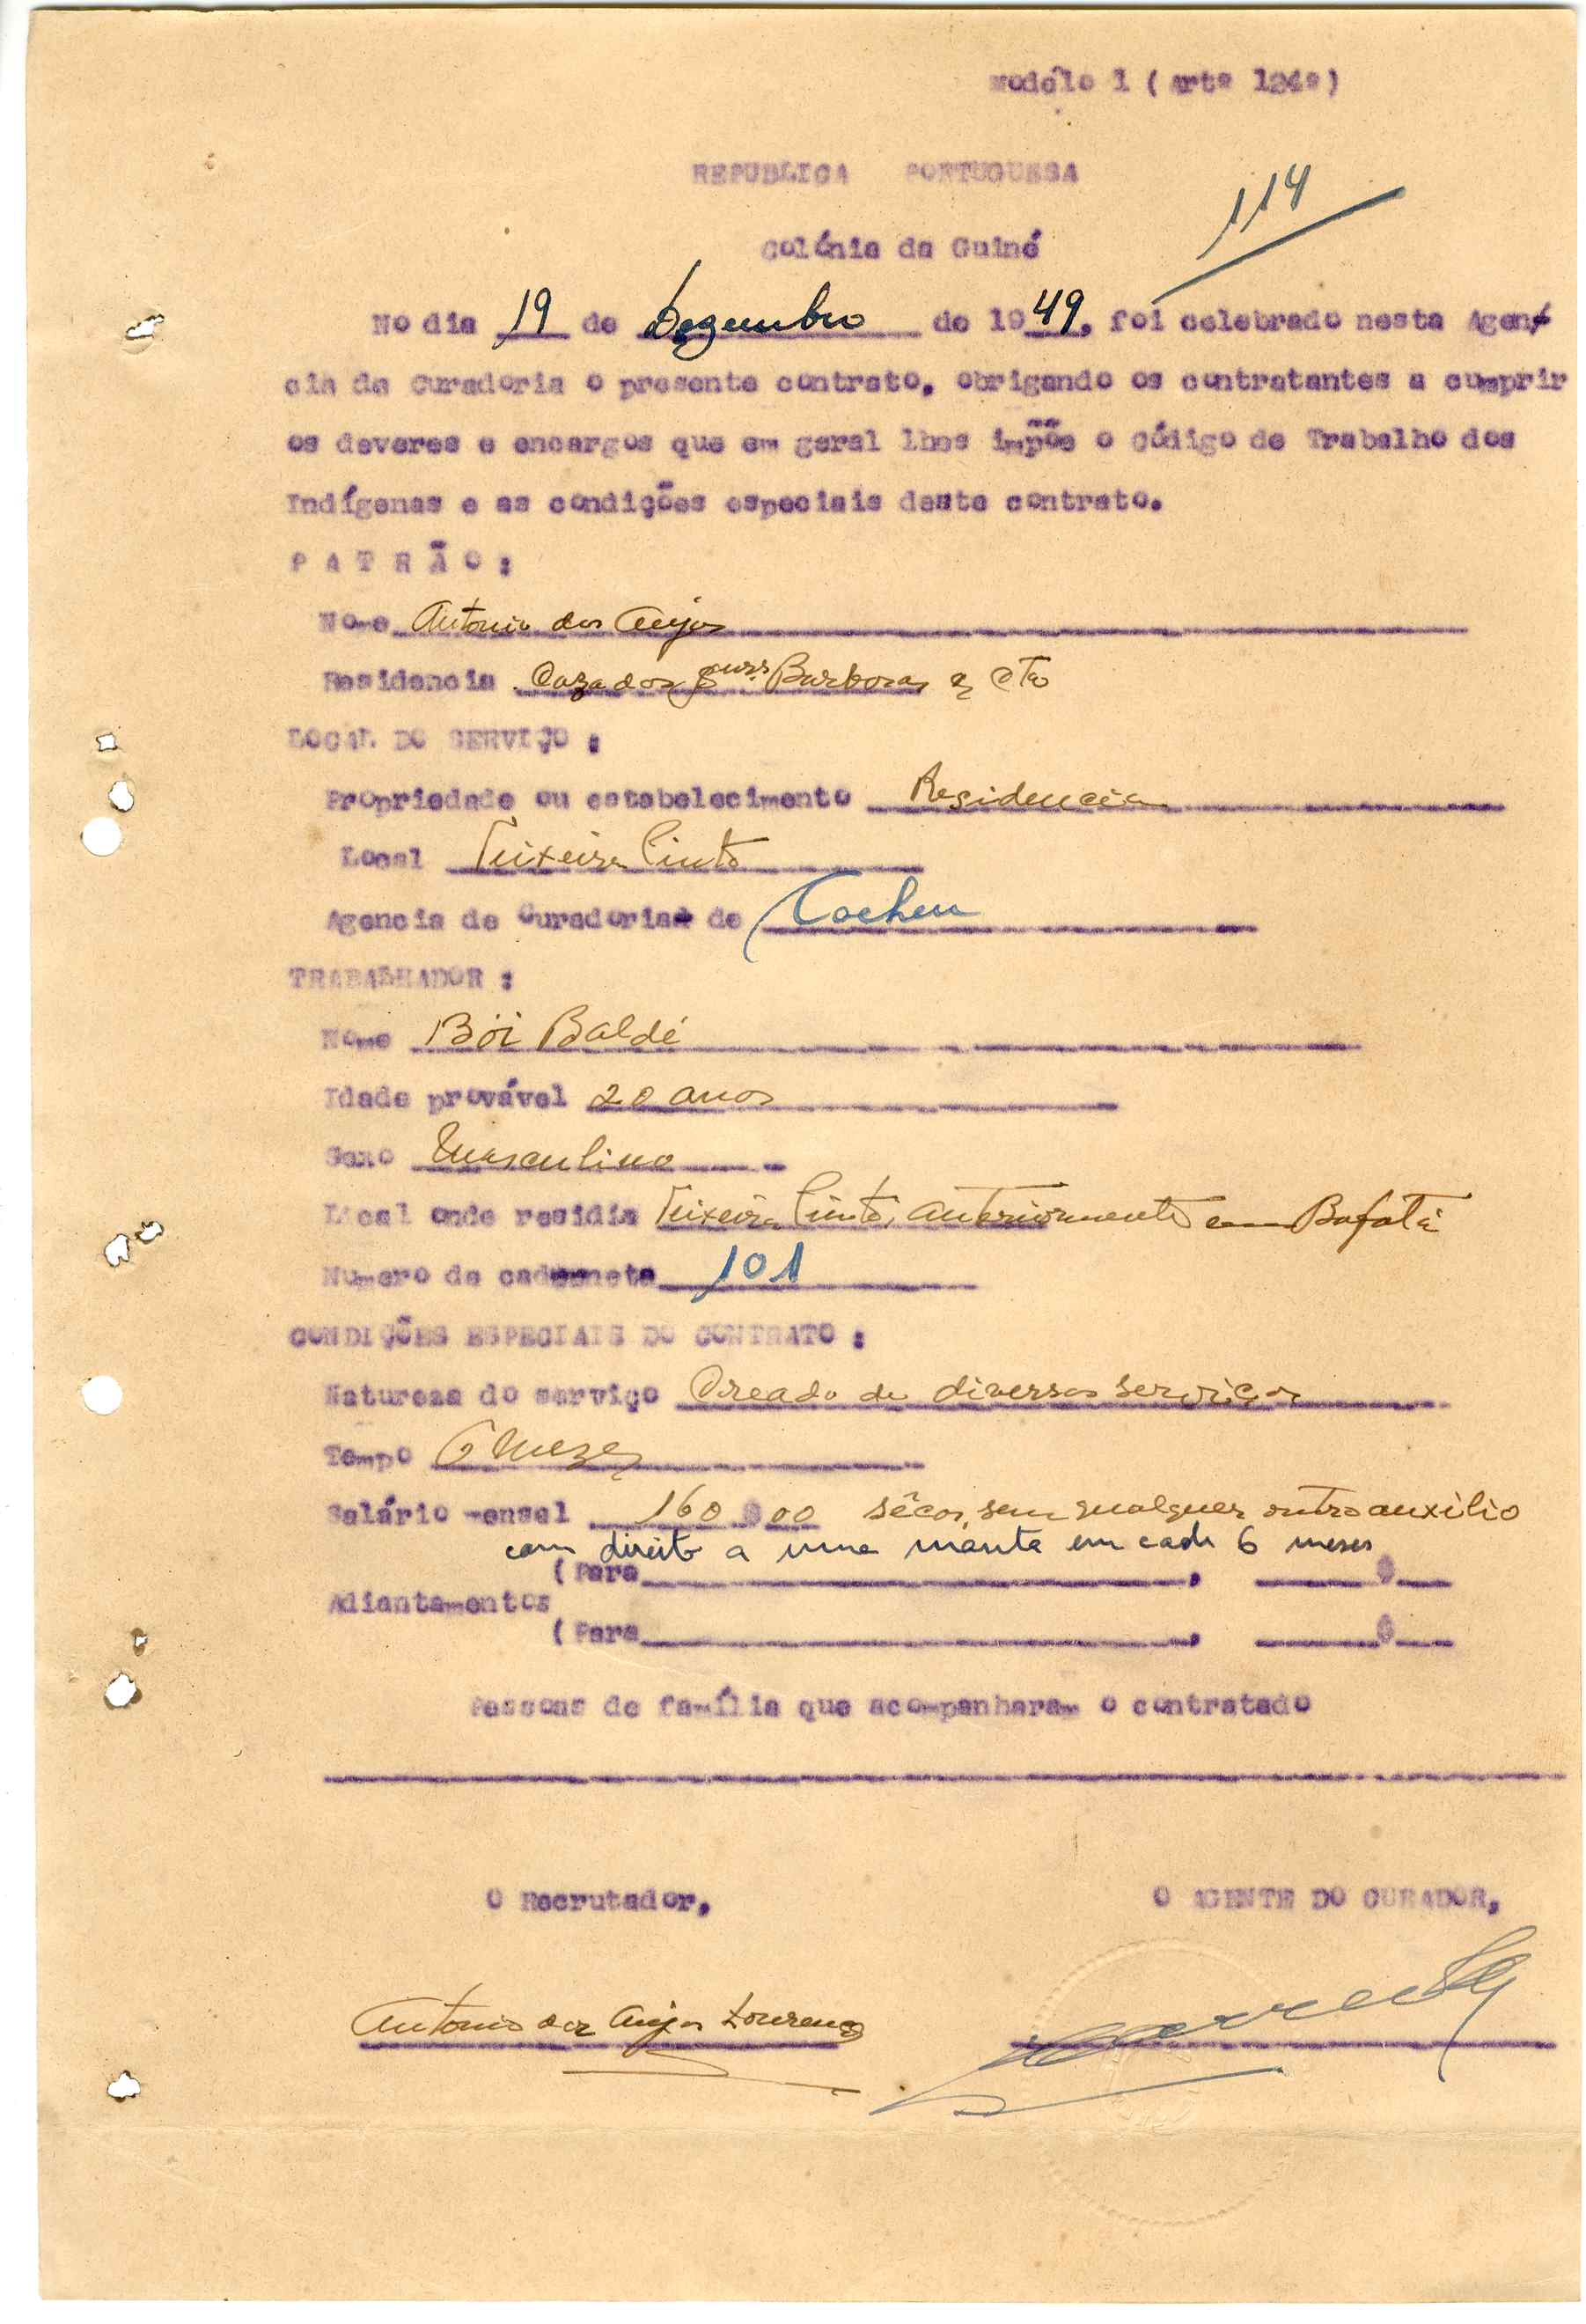 Modélo 1 (Artº 124º)
REPUBLICA PORTUGUESA
114
Colónia da Guiné
No dia 19 de Dezembro de 1949, foi celebrado nesta Agen-
cia da Curadoria o presente contrato, obrigando os contratantes a cumprir
os deveres e encargos que em geral lhes impõe o Código de Trabalho dos
Indígenas e as condições especiais deste contrato.
PATRÃO:
Nome Antonio dos Anjos
Residencia Caza dos Barbosas & Cta
LOCAL DO SERVIÇO:
Propriedade ou estabelecimento Residencia
Local Teixeira Pinto
Agencia da Curadoria de Cacheu
TRABALHADOR:
Nome Bói Baldé
Idade provável 20 anos
Sexo Masculino
Local onde residia Teixeira Pinto, anteriormente em Bafatá
Numero da caderneta 101
CONDIÇÕES ESPECIAIS DO CONTRATO:
Natureza do serviço Creado de diversos serviços
Tempo 6 Mezes
Salário mensal 160$00 sêcos, sem qualquer outro auxilio
com direito a uma manta em cada 6 meses
(Para , $
Adiantamentos
(Para , $
Pessoas de família que acompanharam o contratado
O Recrutador,
O AGENTE DO CURADOR,
Antonio dos Anjos Lourenço